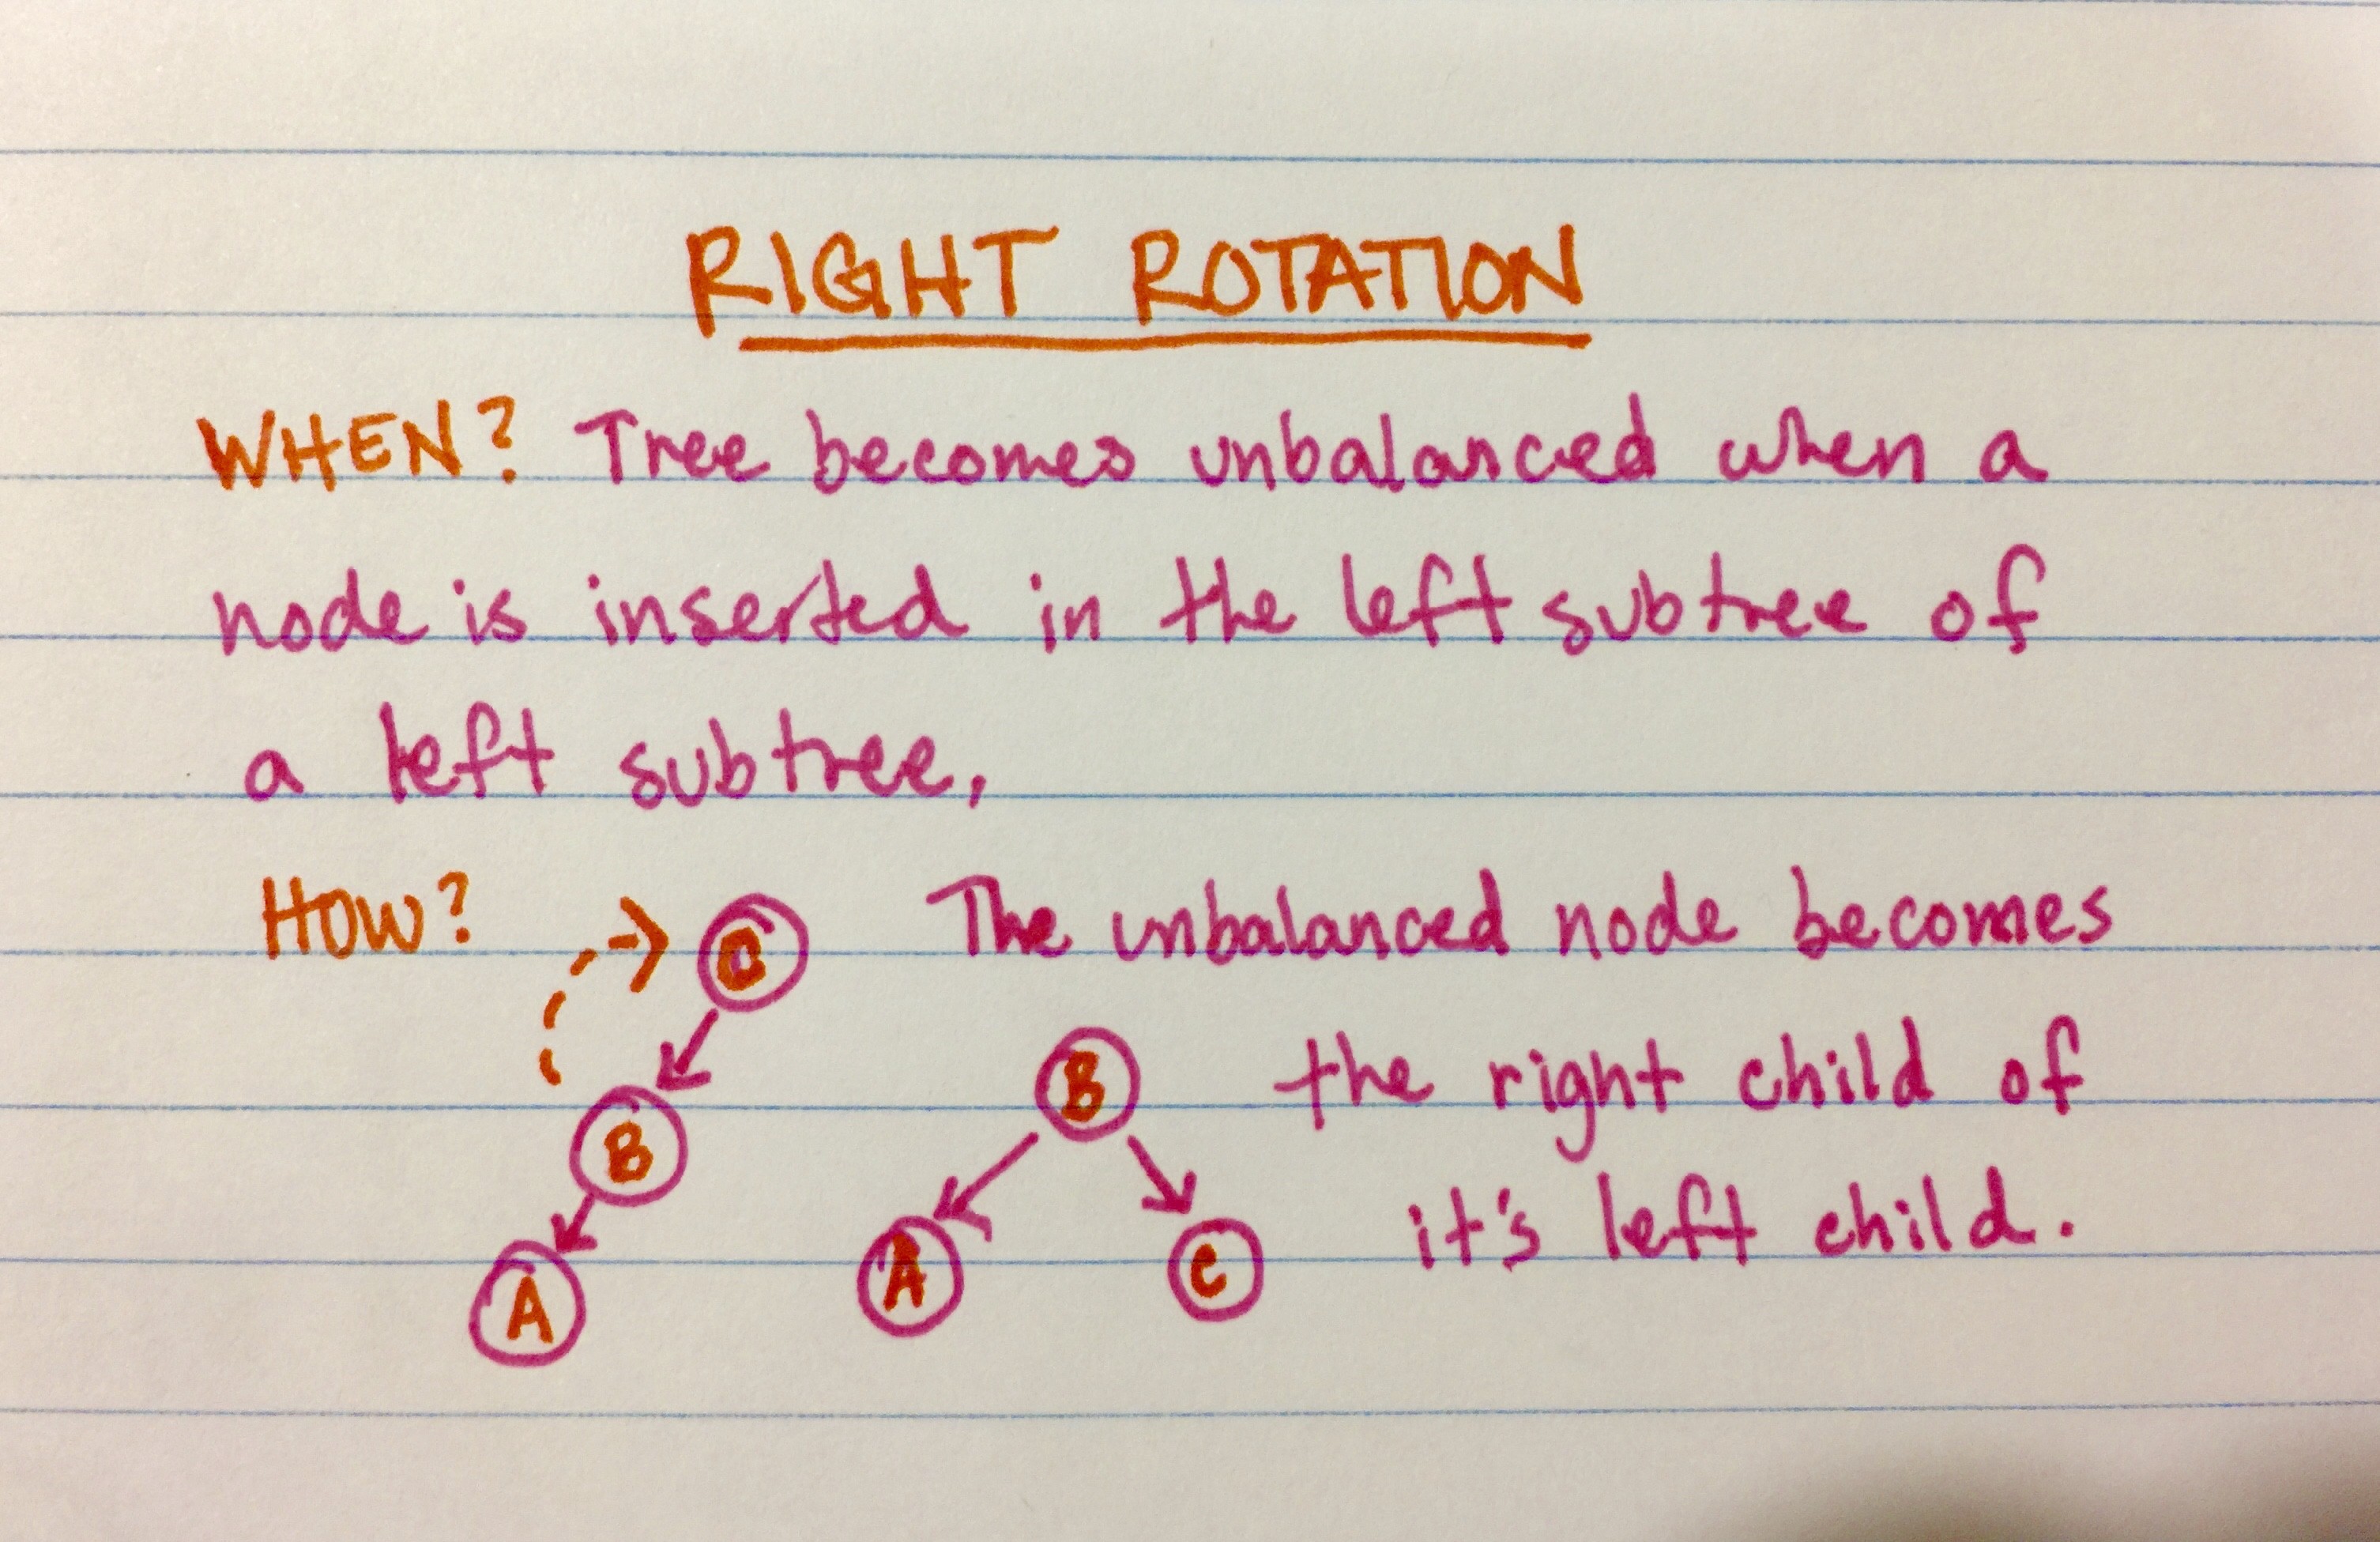 RIGHT ROTATION
WHEN? Tree becomes unbalanced when a
node is inserted in the left subtree of
a left subtree,
HOW? The unbalanced node becomes
B
the right child of
B
it's left child.
A
C
A